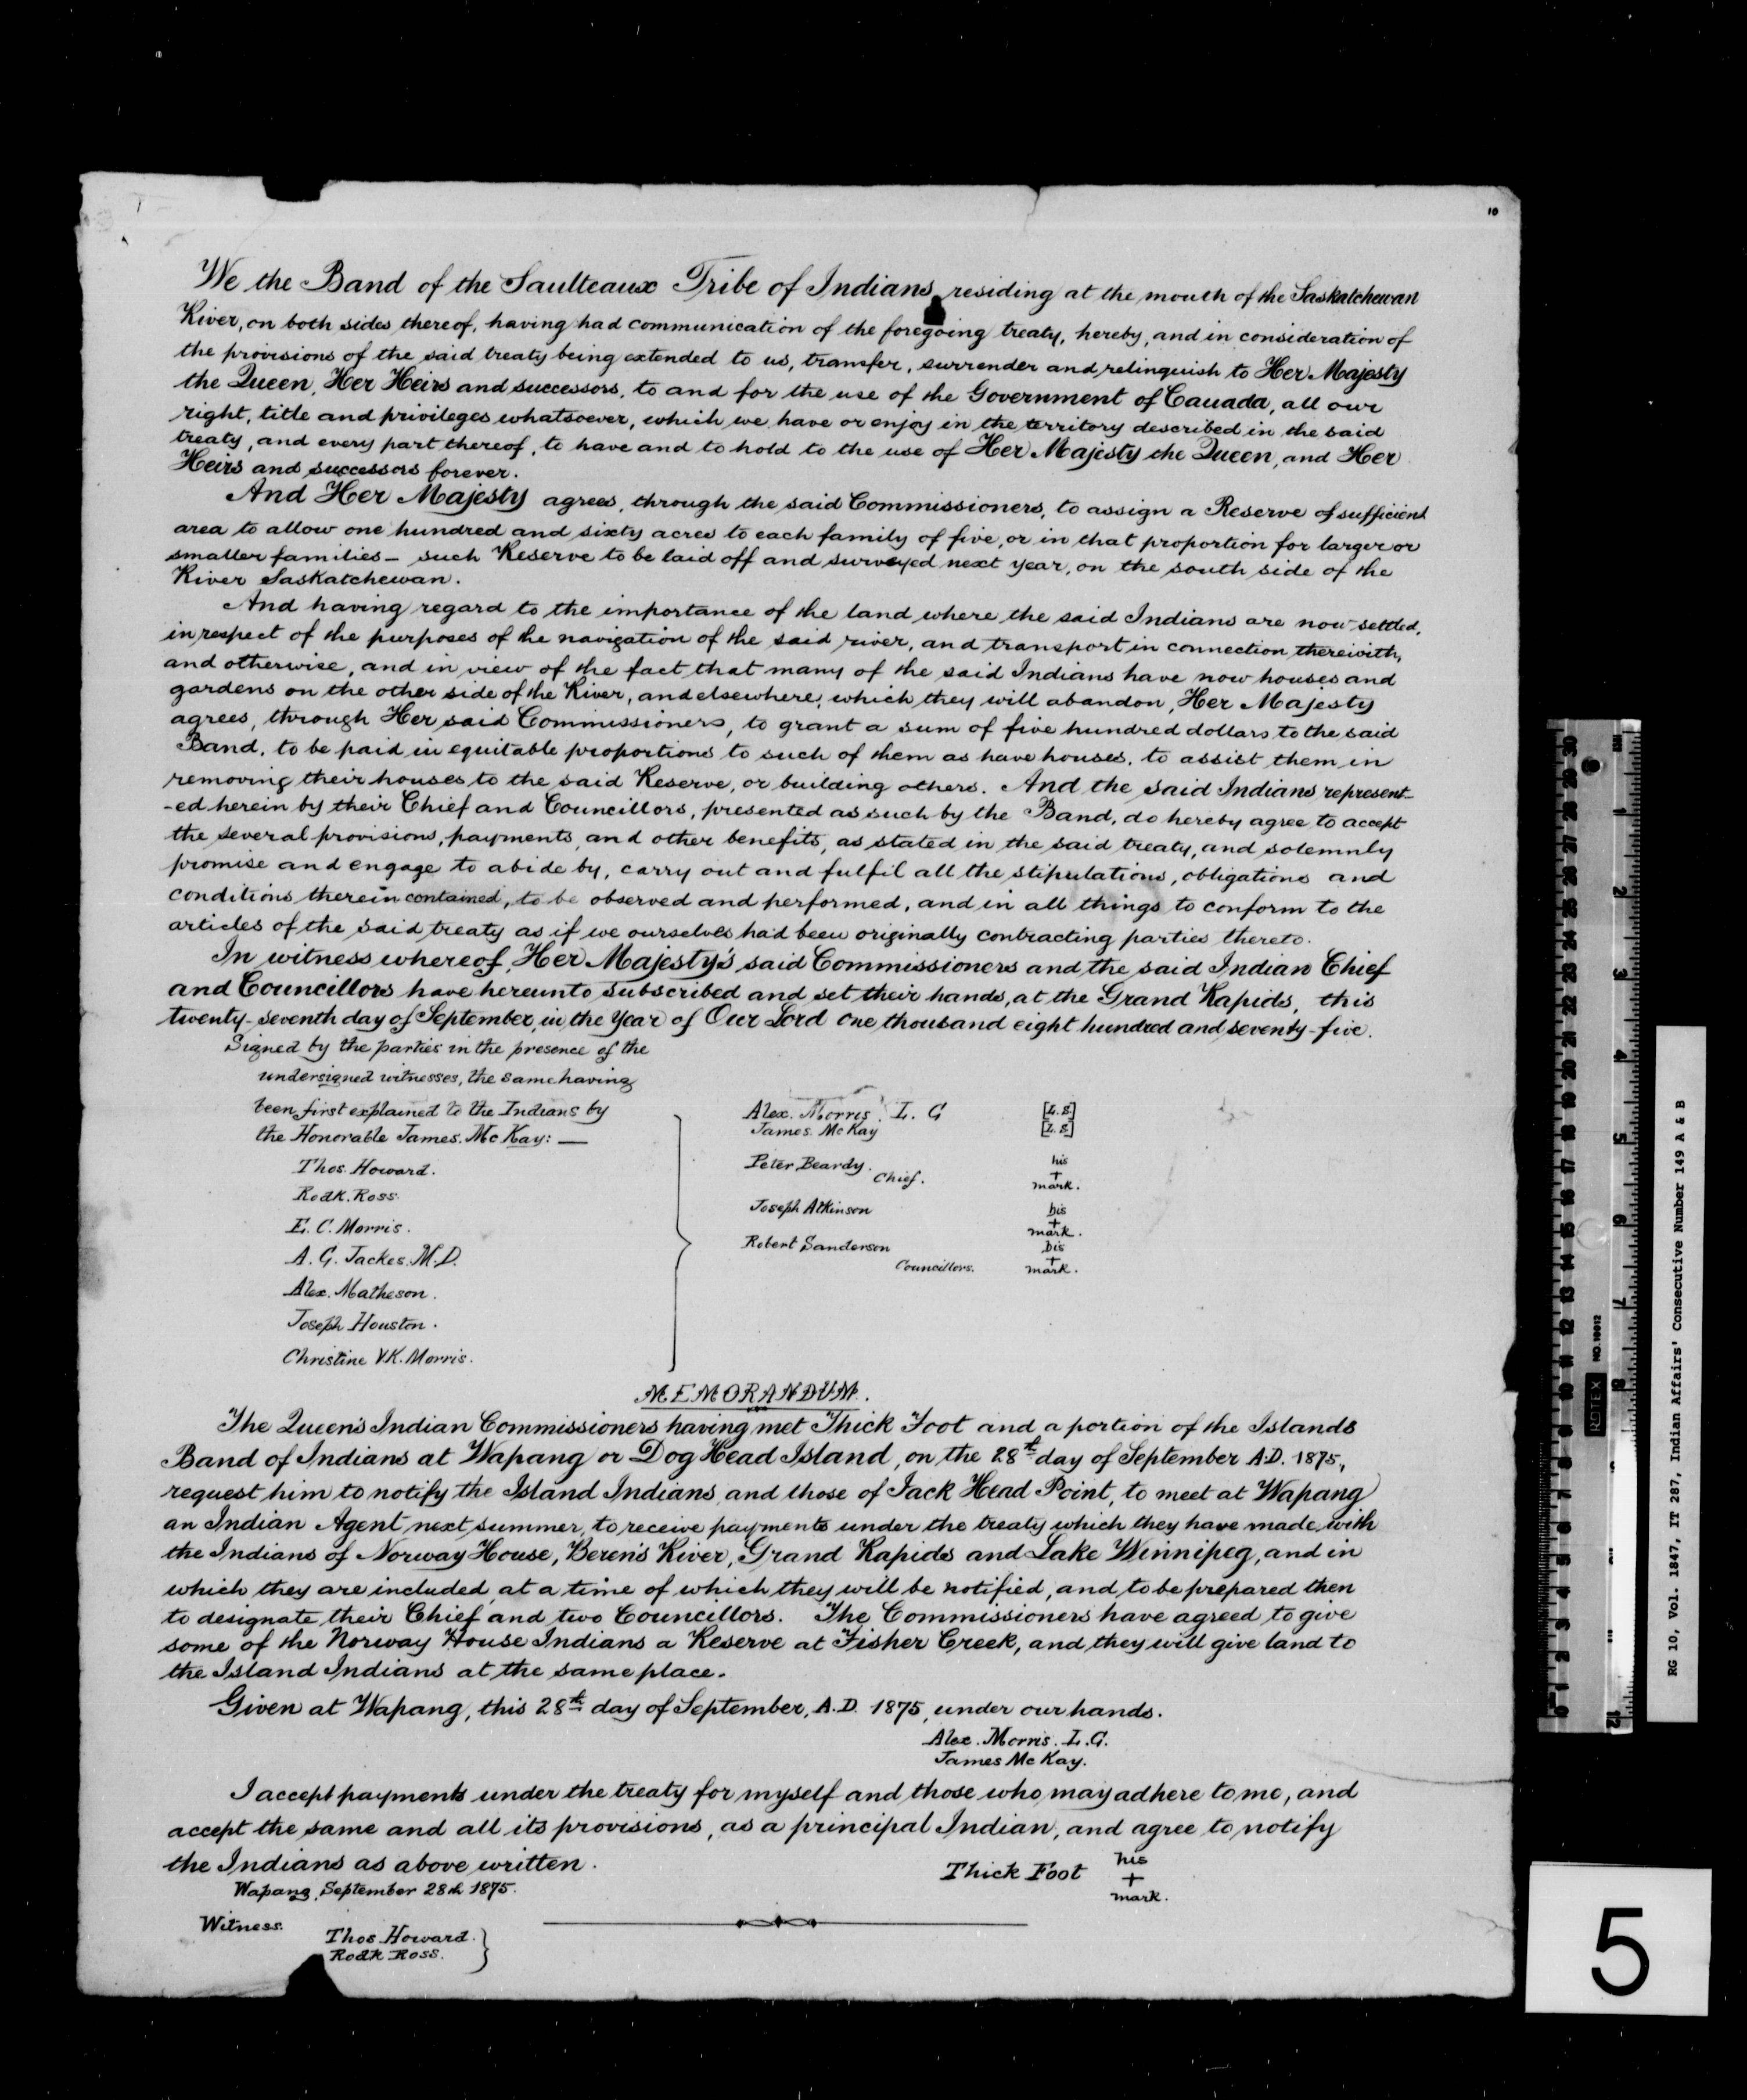 10
We the Band of the Saulteaux Tribe of Indians residing at the mouth of the Saskatchewan
River, on both sides thereof, having had communication of the foregoing treaty, hereby, and in consideration of
the provisions of the said treaty being extended to us, transfer, surrender and relinquish to Her Majesty
the Queen, Her Heirs and successors, to and for the use of the Government of Canada, all our
right, title and privileges whatsoever, which we have or enjoy in the territory described in the said
treaty, and every part thereof, to have and to hold to the use of Her Majesty the Queen, and Her
Heirs and successors forever.
And Her Majesty agrees, through the said Commissioners, to assign a Reserve of sufficient
area to allow one hundred and sixty acres to each family of five, or in that proportion for larger or
smaller families - such Reserve to be laid off and surveyed next year, on the south side of the
River Saskatchewan.
And having regard to the importance of the land where the said Indians are now settled,
in respect of the purposes of the navigation of the said river, and transport in connection therewith,
and otherwise, and in view of the fact that many of the said Indians have now houses and
gardens on the other side of the River, and elsewhere, which they will abandon, Her Majesty
agrees, through Her said Commissioners, to grant a sum of five hundred dollars to the said
Band, to be paid in equitable proportions to such of them as have houses, to assist them in
removing their houses to the said Reserve, or building others. And the said Indians represent-
-ed herein by their Chief and Councillors, presented as such by the Band, do hereby agree to accept
the several provisions, payments, and other benefits, as stated in the said treaty, and solemnly
promise and engage to abide by, carry out and fulfil all the stipulations, obligations and
conditions therein contained, to be observed and performed, and in all things to conform to the
articles of the said treaty as if we ourselves had been originally contracting parties thereto.
In witness whereof, Her Majesty's said Commissioners and the said Indian Chief
and Councillors have hereunto subscribed and set their hands, at the Grand Rapids, this
twenty-seventh day of September, in the Year of Our Lord one thousand eight hundred and seventy-five.
Signed by the parties in the presence of the
undersigned witnesses, the same having
been first explained to the Indians by
the Honorable James. McKay: —
Thos. Howard.
Rodk. Ross.
E. C. Morris.
A. G. Jackes. M.D.
Alex. Matheson.
Joseph Houston.
Christine V.K. Morris.
Alex. Morris. L. G [L.S]
James. McKay [L.S]
Peter Beardy. Chief. his + mark.
Joseph Atkinson his + mark.
Robert Sanderson his + mark.
Councillors.
MEMORANDUM.
The Queen's Indian Commissioners having met Thick Foot and a portion of the Islands
Band of Indians at Wapang or Dog Head Island, on the 28th day of September A.D. 1875,
request him to notify the Island Indians and those of Jack Head Point, to meet at Wapang
an Indian Agent next summer, to receive payments under the treaty which they have made with
the Indians of Norway House, Beren's River, Grand Rapids and Lake Winnipeg, and in
which they are included, at a time of which they will be notified, and to be prepared then
to designate their Chief and two Councillors. The Commissioners have agreed to give
some of the Norway House Indians a Reserve at Fisher Creek, and they will give land to
the Island Indians at the same place.
Given at Wapang, this 28th day of September, A.D. 1875, under our hands.
Alex. Morris. L.G.
James McKay.
I accept payments under the treaty for myself and those who may adhere to me, and
accept the same and all its provisions, as a principal Indian, and agree to notify
the Indians as above written.
Thick Foot his + mark.
Wapang, September 28th 1875.
Witness.
Thos. Howard.
Rodk Ross.
RG 10, Vol. 1847, IT 287, Indian Affairs' Consecutive Number 149 A & B
ROTEX
NO. 10012
5